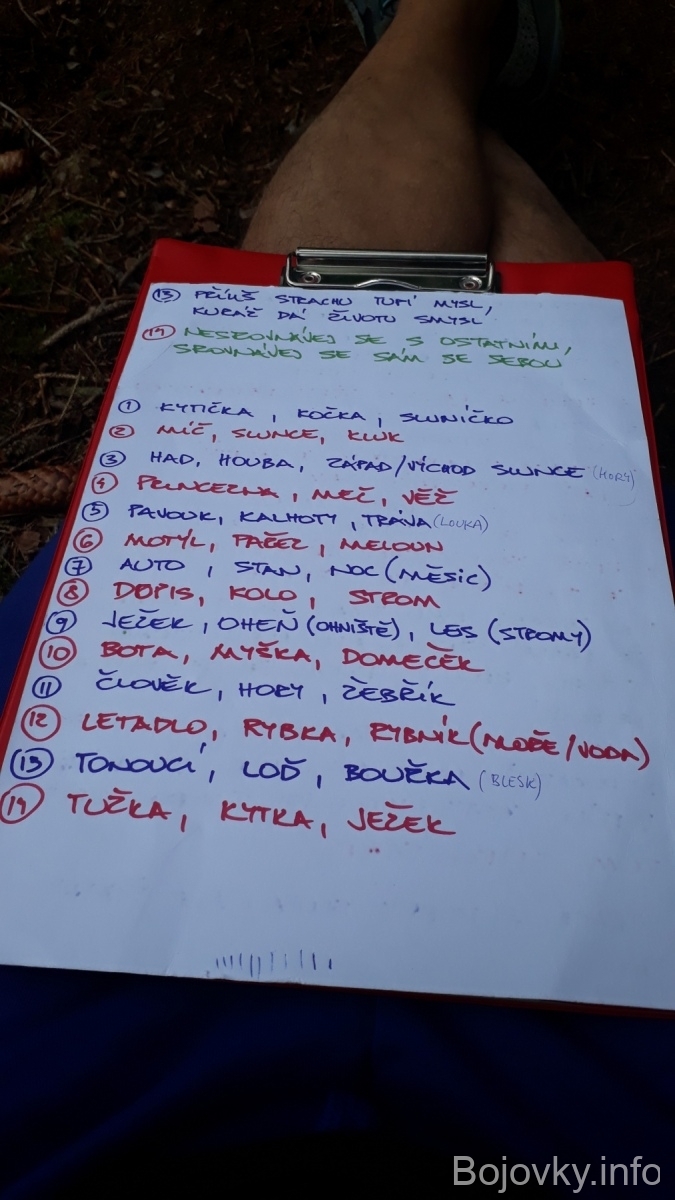 13 PŘÍLIŠ STRACHU TUPÍ MYSL,
KURÁŽ DÁ ŽIVOTU SMYSL
14 NESROVNÁVEJ SE S OSTATNÍMI,
SROVNÁVEJ SE SÁM SE SEBOU
1 KYTIČKA, KOČKA, SLUNÍČKO
2 MÍČ, SLUNCE, KLUK
3 HAD, HOUBA, ZÁPAD/VÝCHOD SLUNCE (HORY)
4 PRINCEZNA, MEČ, VĚŽ
5 PAVOUK, KALHOTY, TRÁVA (LOUKA)
6 MOTÝL, PAŘEZ, MELOUN
7 AUTO, STAN, NOC (MĚSÍC)
8 DOPIS, KOLO, STROM
9 JEŽEK, OHEŇ (OHNIŠTĚ), LES (STROMY)
10 BOTA, MYŠKA, DOMEČEK
11 ČLOVĚK, HORY, ŽEBŘÍK
12 LETADLO, RYBKA, RYBNÍK (MOŘE/VODA)
13 TONOUCÍ, LOĎ, BOUŘKA (BLESK)
14 TUŽKA, KYTKA, JEŽEK
Bojovky.info